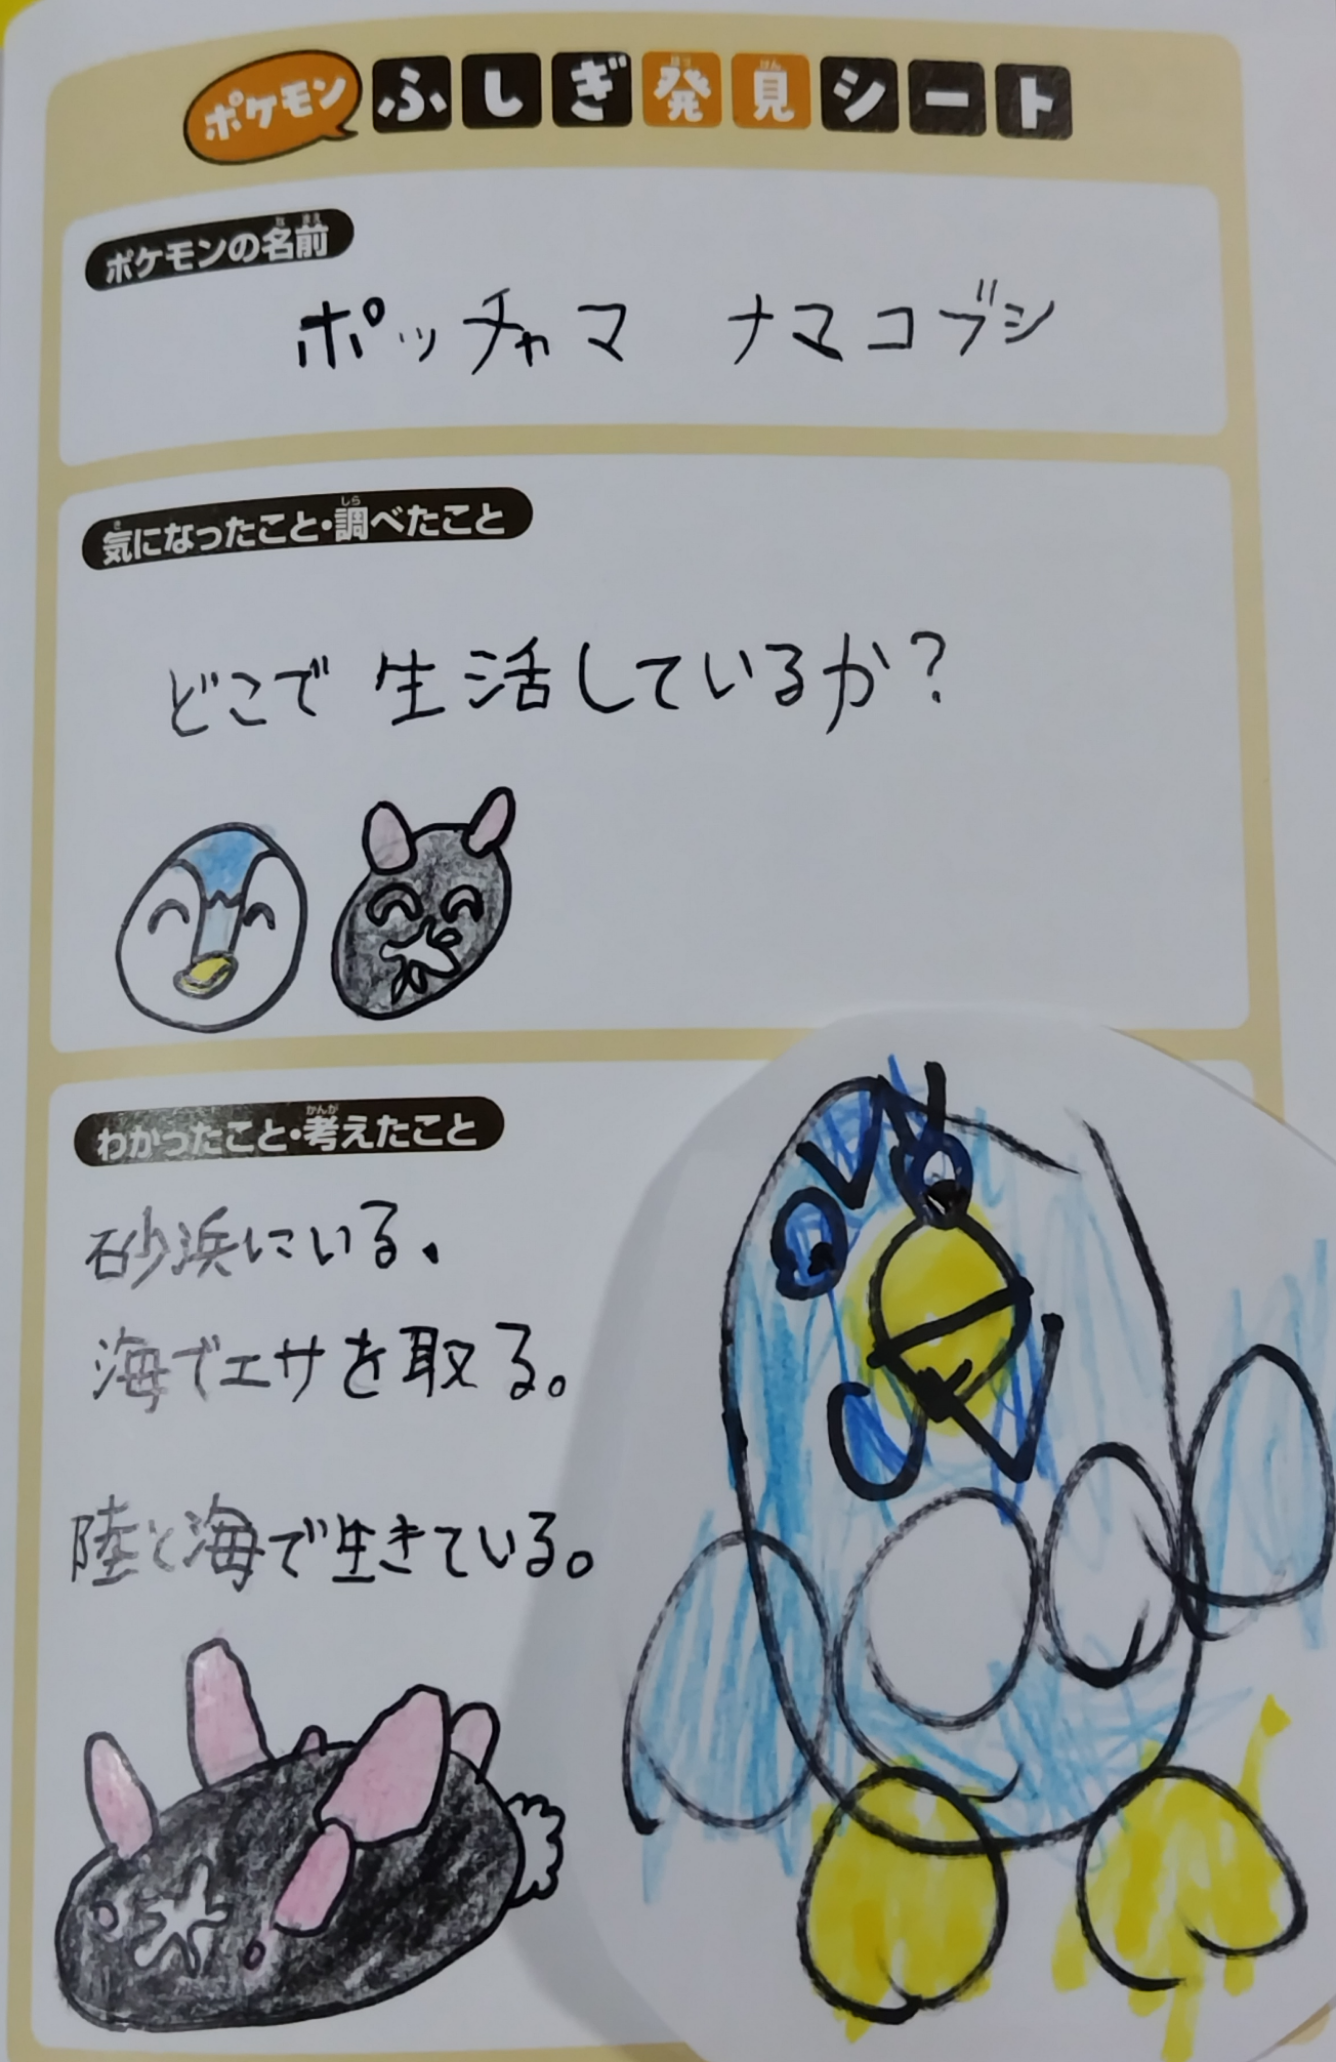 ポケモン ふしぎ発見シート
ポケモンの名前
ポッチャマ ナマコブシ
気になったこと・調べたこと
どこで生活しているか？
わかったこと・考えたこと
砂浜にいる、
海でエサを取る。
陸と海で生きている。